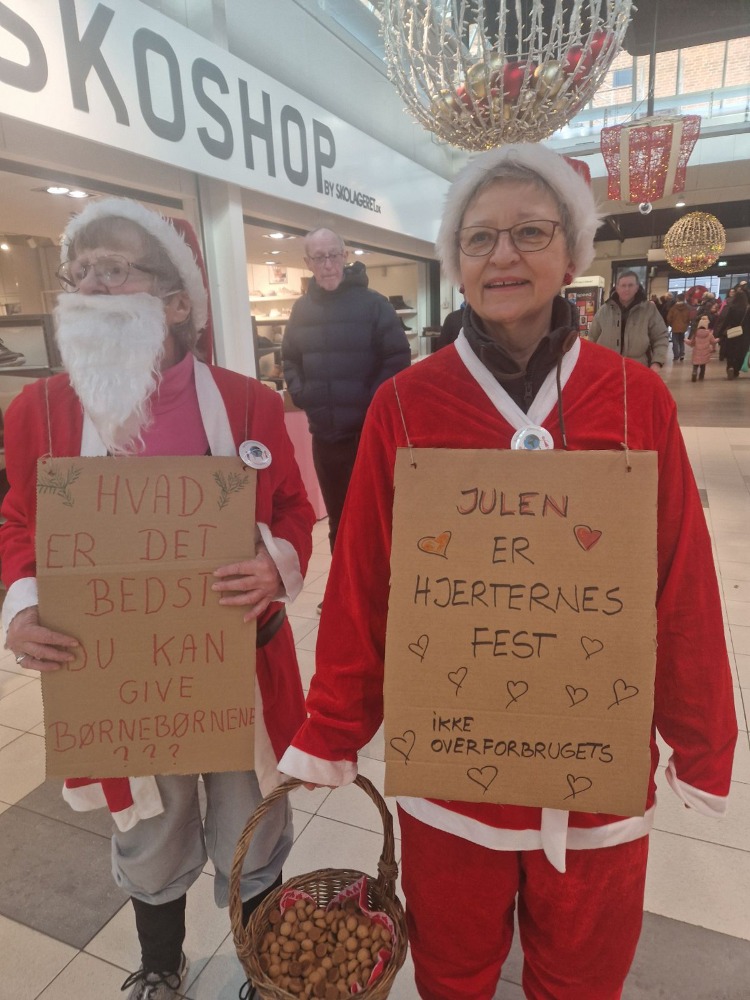 SKOSHOP
BY SKOLAGERET.DK
HVAD
ER DET
BEDST
DU KAN
GIVE
BØRNEBØRNENE
???
JULEN
ER
HJERTERNES
FEST
iKKE
OVERFORBRUGETS